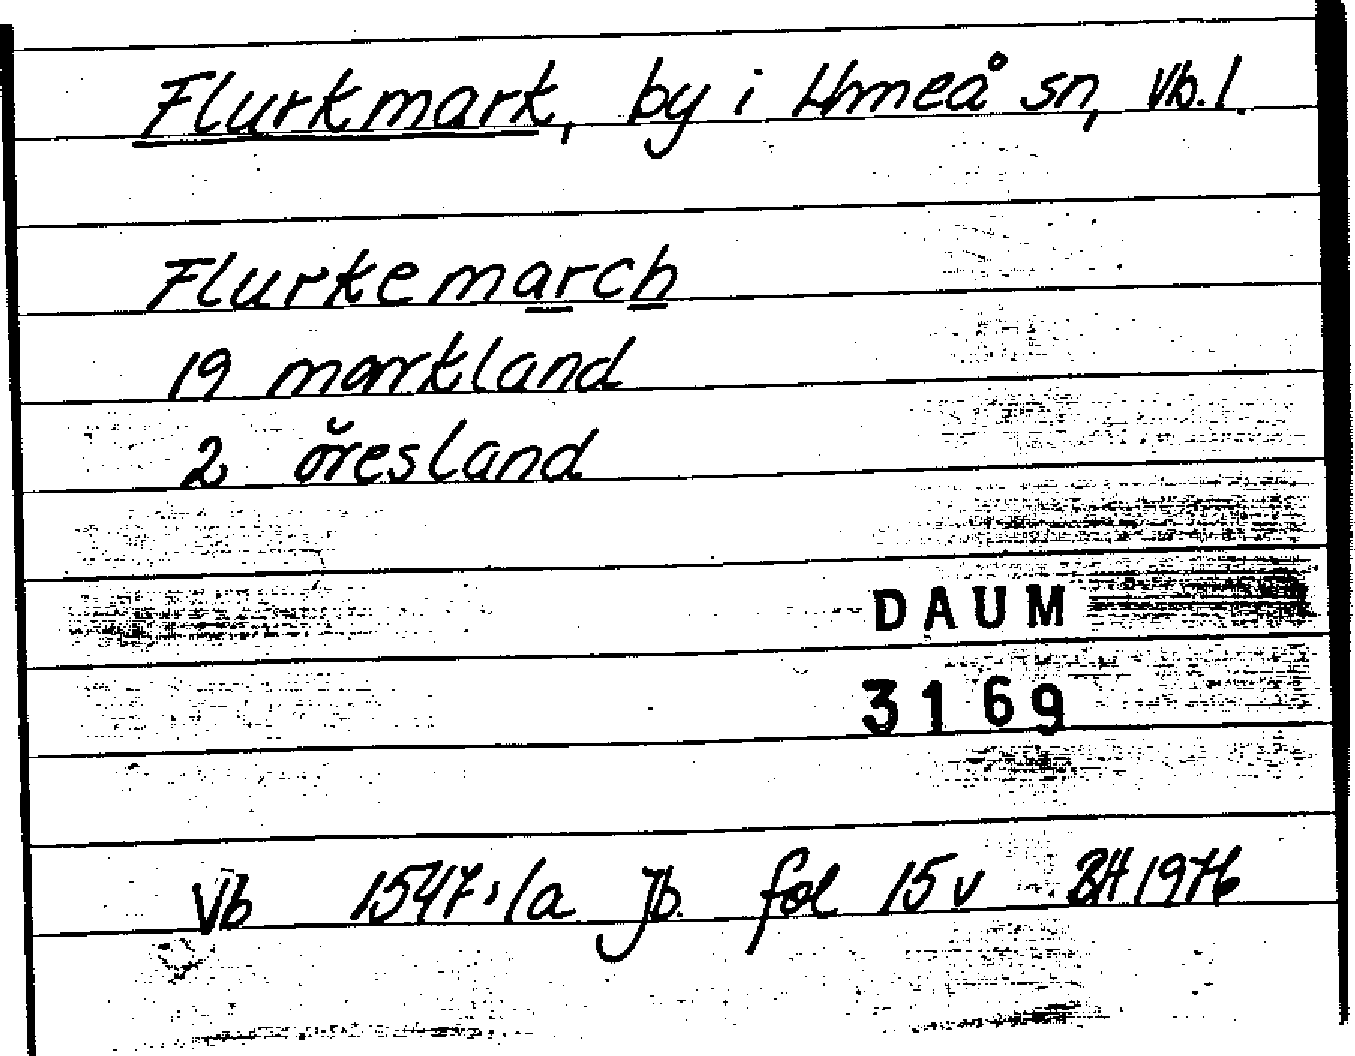 Flurkmark, by i Umeå sn, Vb. l.
Flurkemarch
19 markland
2 öresland
DAUM
3169
Vb 1547:1a Jb fol 15 v BH 1976